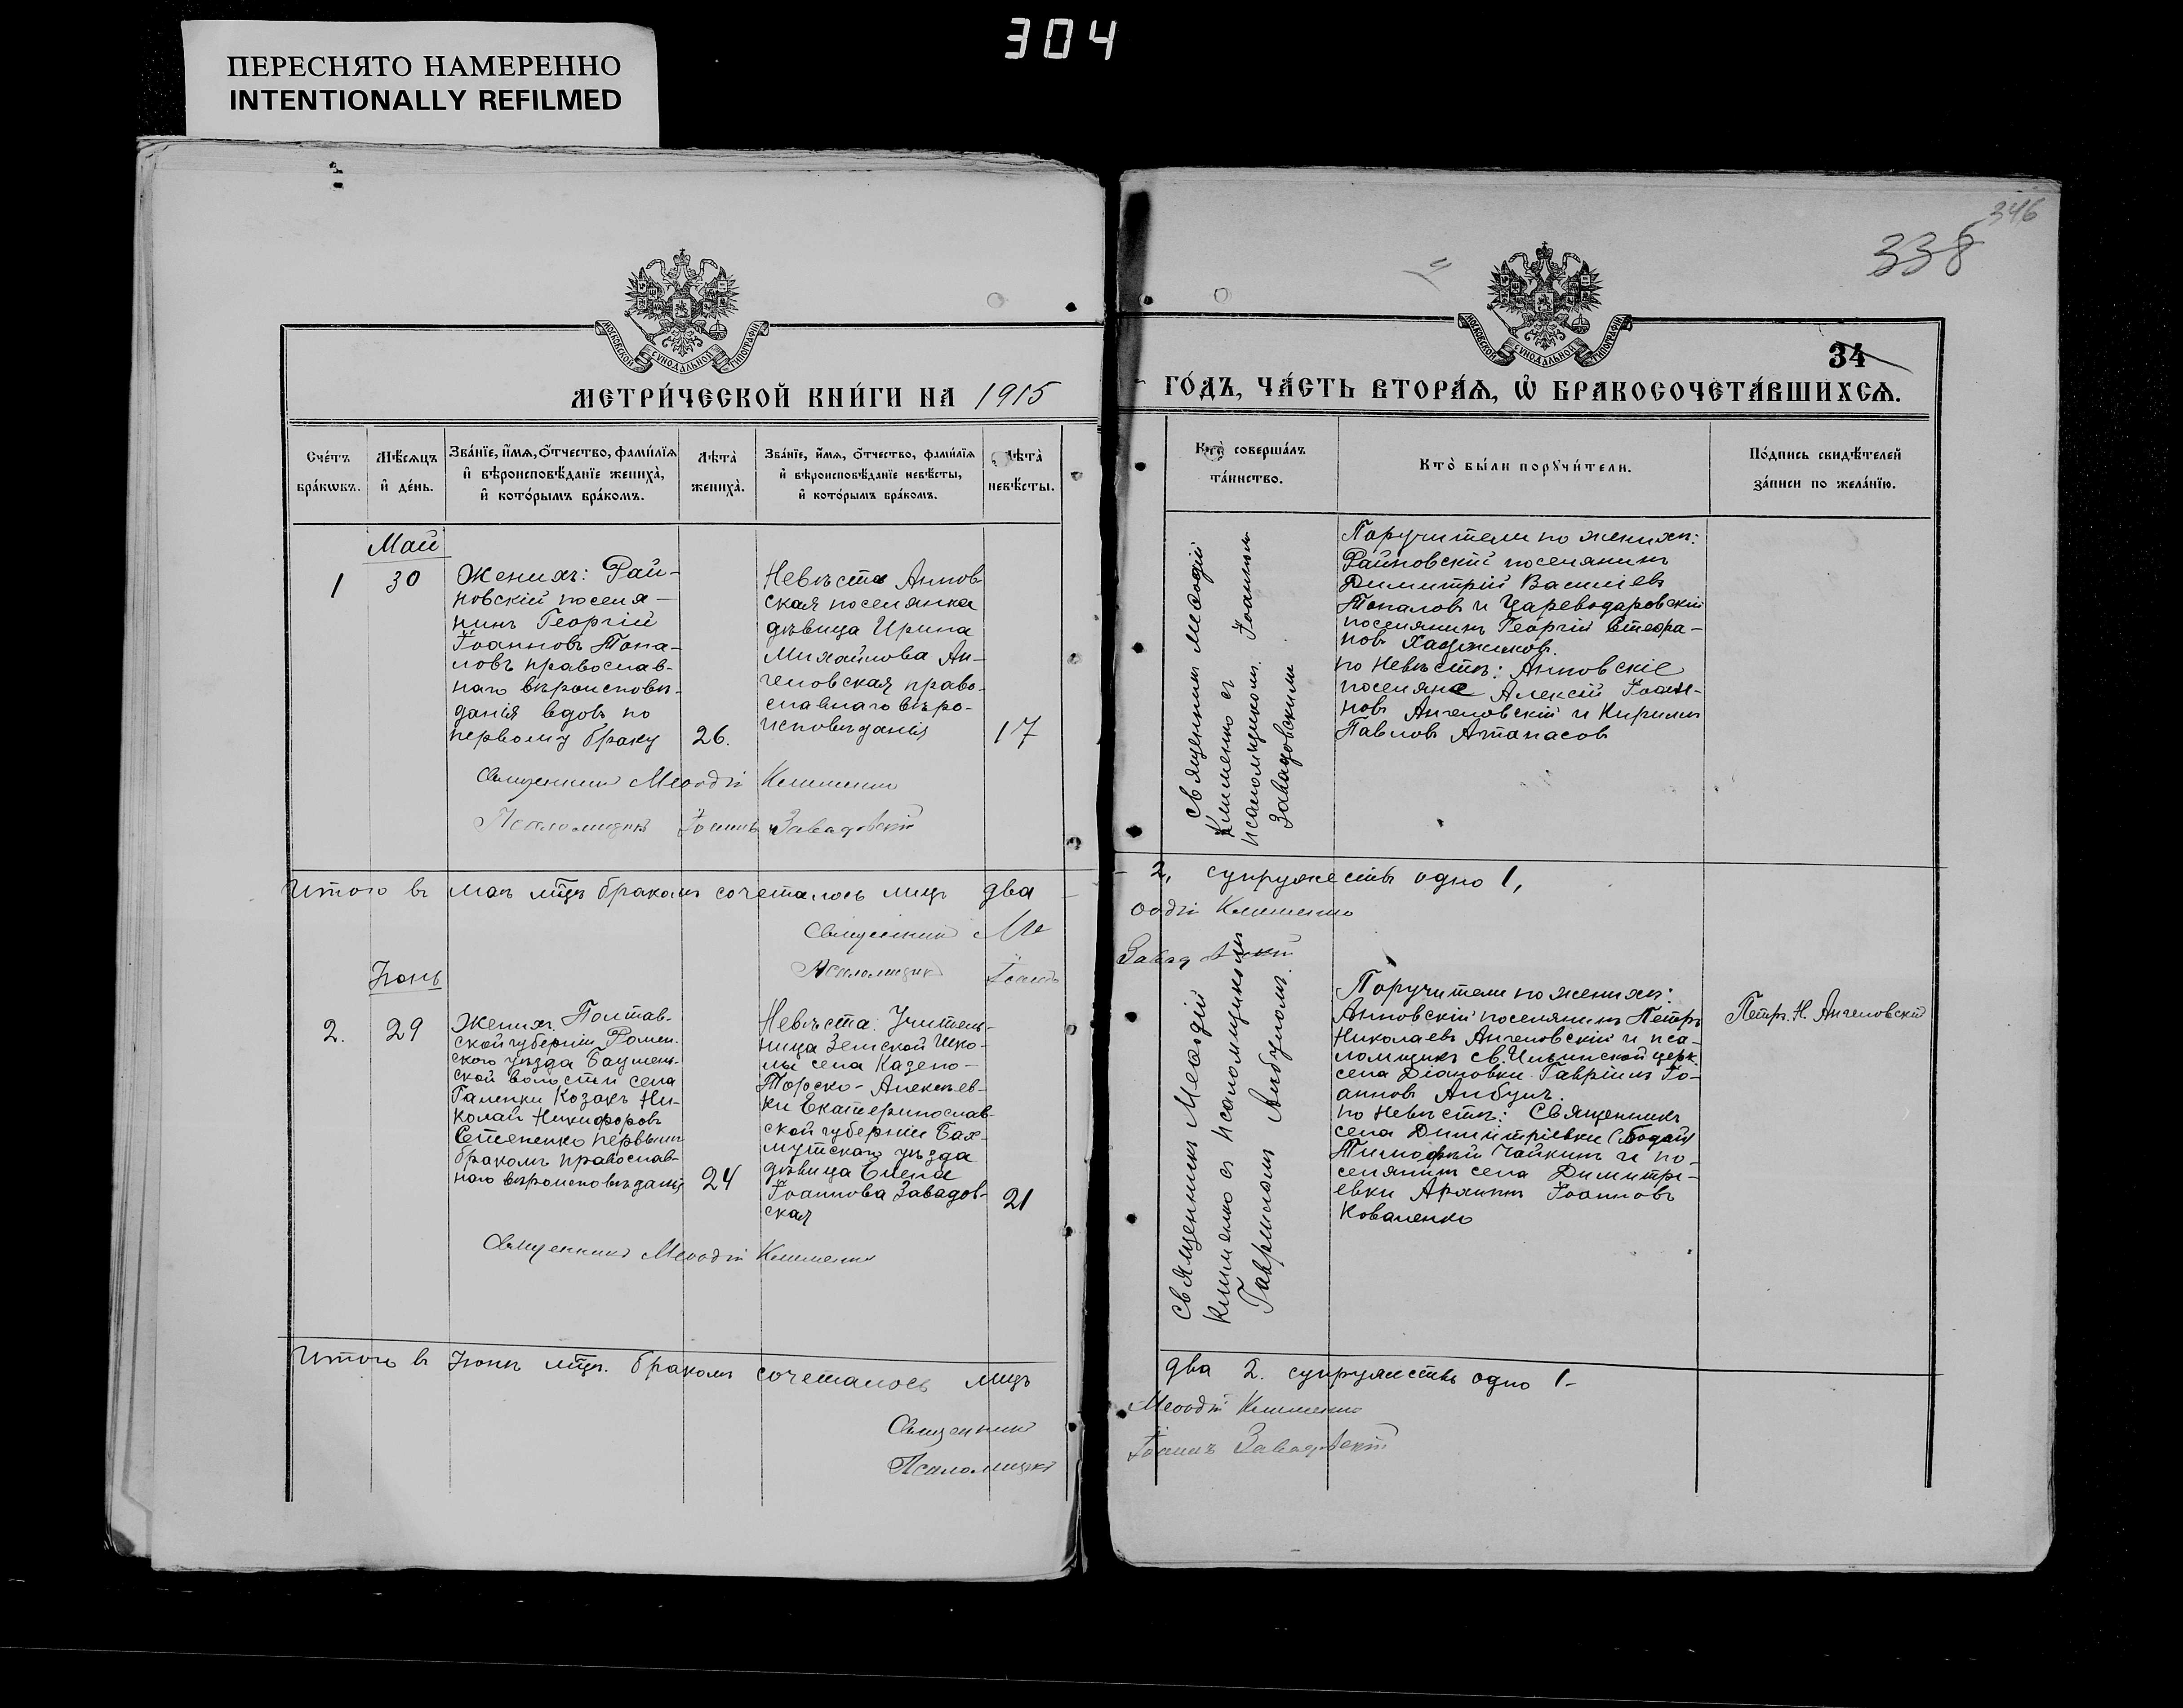 304
ПЕРЕСНЯТО НАМЕРЕННО
INTENTIONALLY REFILMED
346
338
МОСКОВСКОЙ СѴНОДАЛЬНОЙ ТИПОГРАФІИ
МОСКОВСКОЙ СѴНОДАЛЬНОЙ ТИПОГРАФІИ
34
МЕТРИ́ЧЕСКОЙ КНИ́ГИ НА 1915
ГО́ДЪ, ЧА́СТЬ ВТОРА́Я, Ѡ҆ БРАКОСОЧЕТА́ВШИХСѦ.
Сче́тъ
бра́кѡвъ.
Мѣ́сѧцъ
и҆ де́нь.
Зва́нїе, и҆́мѧ, ѻ҆́тчество, фами́лїѧ
и҆ вѣроисповѣ́данїе жениха̀,
и҆ кото́рымъ бра́комъ.
Лѣ́та
жениха̀.
Зва́нїе, и҆́мѧ, ѻ҆́тчество, фами́лїѧ
и҆ вѣроисповѣ́данїе невѣ́сты,
и҆ кото́рымъ бра́комъ.
Лѣ́та
невѣ́сты.
Кто̀ соверша́лъ
та́инство.
Кто̀ бы́ли порꙋчи́тели.
По́дпись свидѣ́телей
за́писи по жела́нїю.
Май
1
30
Женихъ: Рай-
новскій поселя-
нинъ Георгій
Іоанновъ Топа-
ловъ православ-
наго вѣроисповѣ-
данія вдовъ по
первому браку
26.
Невѣста Аннов
ская поселянка
дѣвица Ирина
Михайлова Ан-
геловская право-
славнаго вѣро-
исповѣданія
17
Священникъ Меѳодій
Клименко съ
псаломщикомъ Іоанномъ
Завадовскимъ
Поручители по женихѣ:
Райновскій поселянинъ
Димитрій Василіевъ
Топаловъ и Цареводаровскій
поселянинъ Георгій Стефа-
новъ Хаджиковъ.
по Невѣстѣ: Анновскіе
поселяне Алексій Іоан-
новъ Ангеловскій и Кириллъ
Павловъ Атанасовъ
Священникъ Меѳодій Клименко
Псаломщикъ Іоаннъ Завадовскій
Итого въ маѣ мцѣ бракомъ сочеталось лицъ два
2, супружествъ одно 1,
Священникъ Ме
ѳодій Клименко
Псаломщикъ Іоаннъ
Завадовскій
Іюнь
2.
29
Женихъ. Полтав-
ской губерніи Ромен-
скаго уѣзда
ской волости села
Галенки Козакъ Ни-
колай Никифоровъ
Степенко первымъ
бракомъ православ-
наго вѣроисповѣданія
24
Невѣста. Учитель-
ница Земской Шко-
лы села Казено-
Торско-Алексѣев-
ки Екатеринослав-
ской губерніи Бах-
мутскаго уѣзда
дѣвица Елена
Іоаннова Завадов-
ская
21
Священникъ Меѳодій
Клименко съ псаломщикомъ
Гавріиломъ Аибуломъ.
Поручители по женихѣ:
Анновскій поселянинъ Петръ
Николаевъ Ангеловскій и пса-
ломщикъ св. Ильинской церк.
села Діановки Гавріилъ Іо-
анновъ Аибулъ.
по Невѣстѣ: Священникъ
села Димитріевки
Тимофей Чайкинъ и по-
селянинъ села Димитрі-
евки Архипъ Іоанновъ
Коваленко
Петръ. Н. Ангеловскій
Священникъ Меѳодій Клименко
Итого въ Іюнѣ мцѣ. бракомъ сочеталось лицъ
два 2. супружествъ одно 1-
Священникъ
Меѳодій Клименко
Псаломщикъ
Іоаннъ Завадовскій